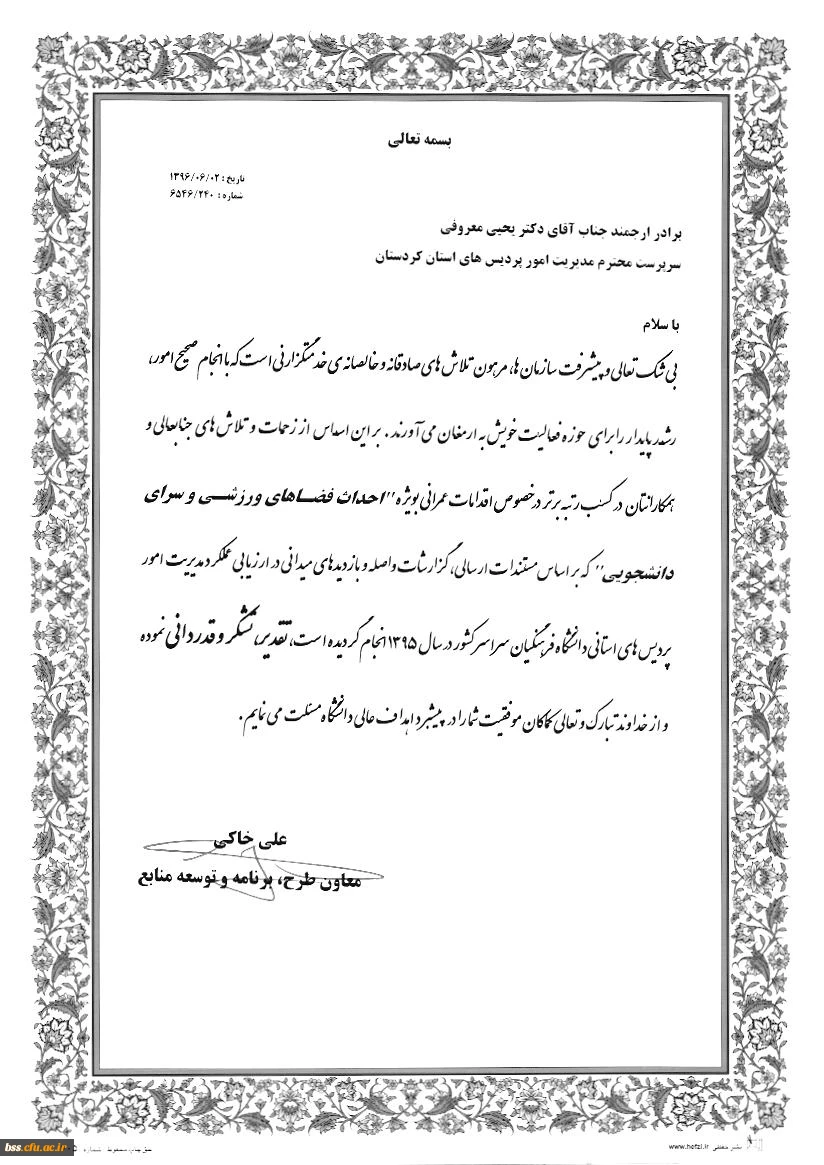 بسمه تعالی
تاریخ : ۱۳۹۶/۰۶/۰۲
شماره : ۶۵۴۶/۲۴۰
برادر ارجمند جناب آقای دکتر یحیی معروفی
سرپرست محترم مدیریت امور پردیس های استان کردستان
با سلام
بی شک تعالی و پیشرفت سازمان ها، مرهون تلاش های صادقانه و خالصانه ی خدمتگزارانی است که با انجام صحیح امور،
رشد پایدار را برای حوزه فعالیت خویش به ارمغان می آورند . بر این اساس از زحمات و تلاش های جنابعالی و
همکارانتان در کسب رتبه برتر در خصوص اقدامات عمرانی بویژه "احداث فضاهای ورزشی و سرای
دانشجویی" که بر اساس مستندات ارسالی، گزارشات واصله و بازدیدهای میدانی در ارزیابی عملکرد مدیریت امور
پردیس های استانی دانشگاه فرهنگیان سراسر کشور در سال ۱۳۹۵ انجام گردیده است، تقدیر، تشکر و قدردانی نموده
و از خداوند تبارک و تعالی کماکان موفقیت شما را در پیشبرد اهداف عالی دانشگاه مسئلت می نمایم.
علی خاکی
معاون طرح، برنامه و توسعه منابع
bss.cfu.ac.ir
شماره
www.hefzi.ir